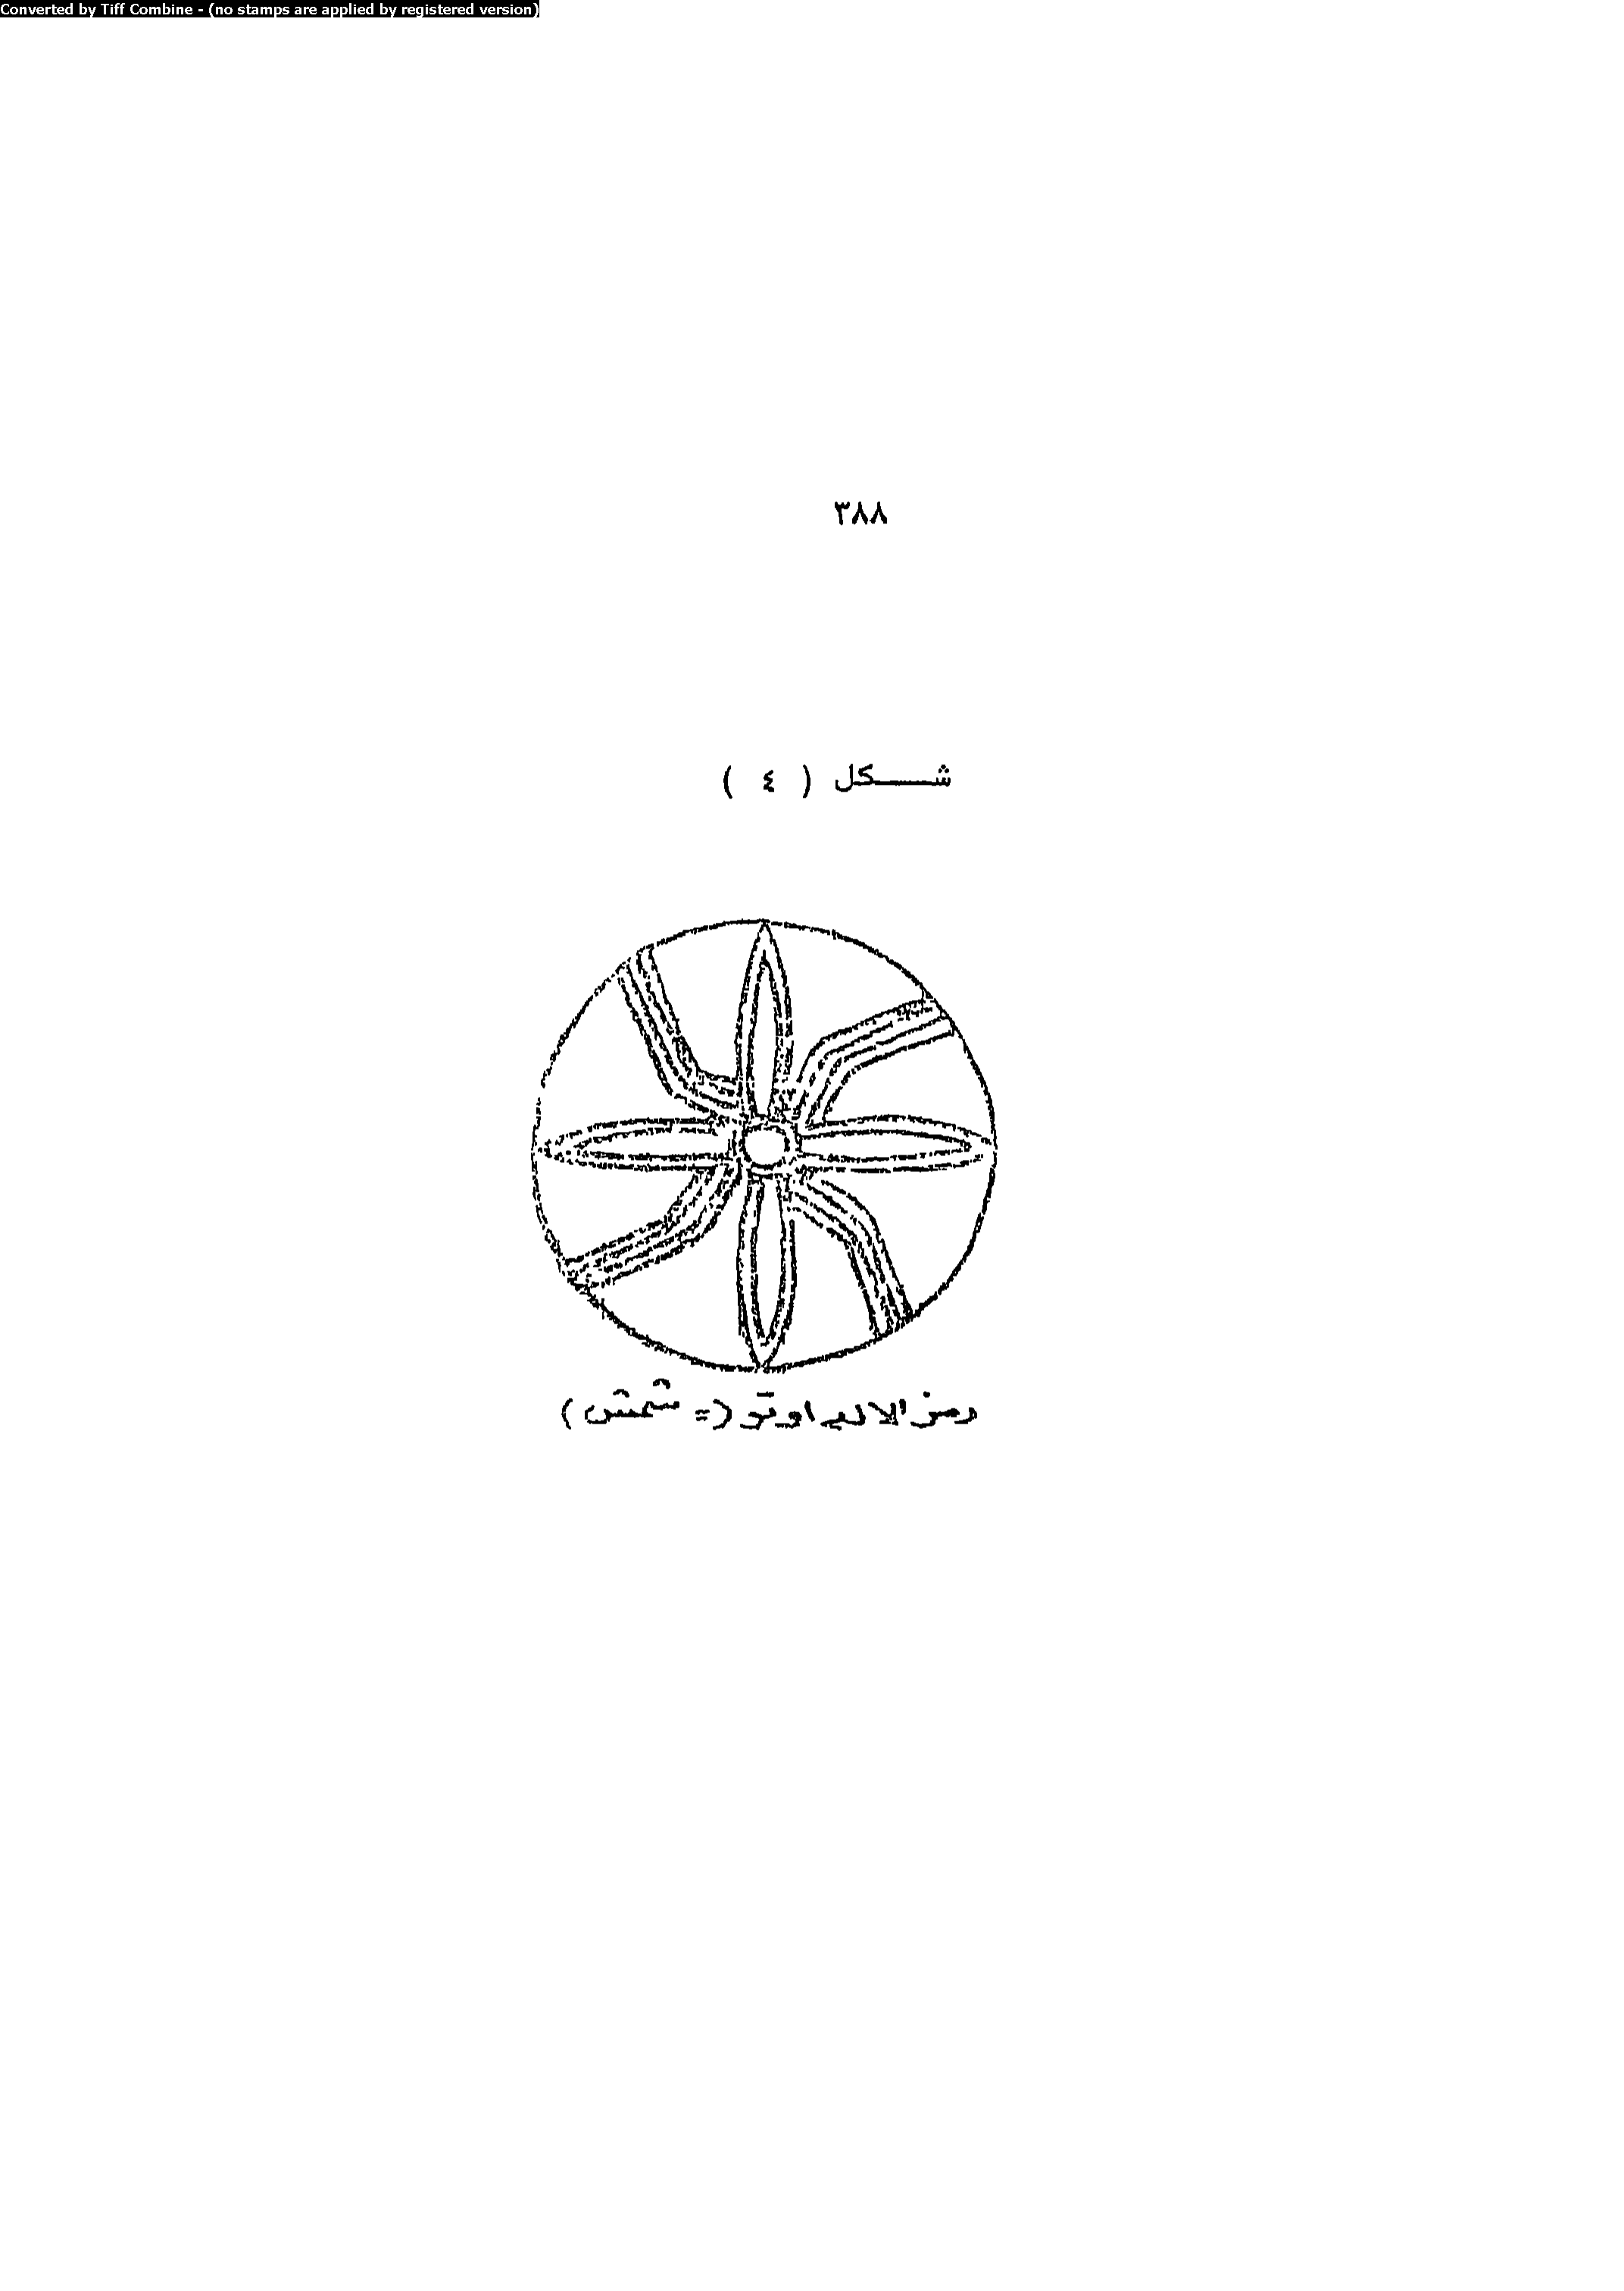 Converted by Tiff Combine - (no stamps are applied by registered version)
٣٨٨
شـــكل ( ٤ )
رمز الاله اوتو (= شمش)